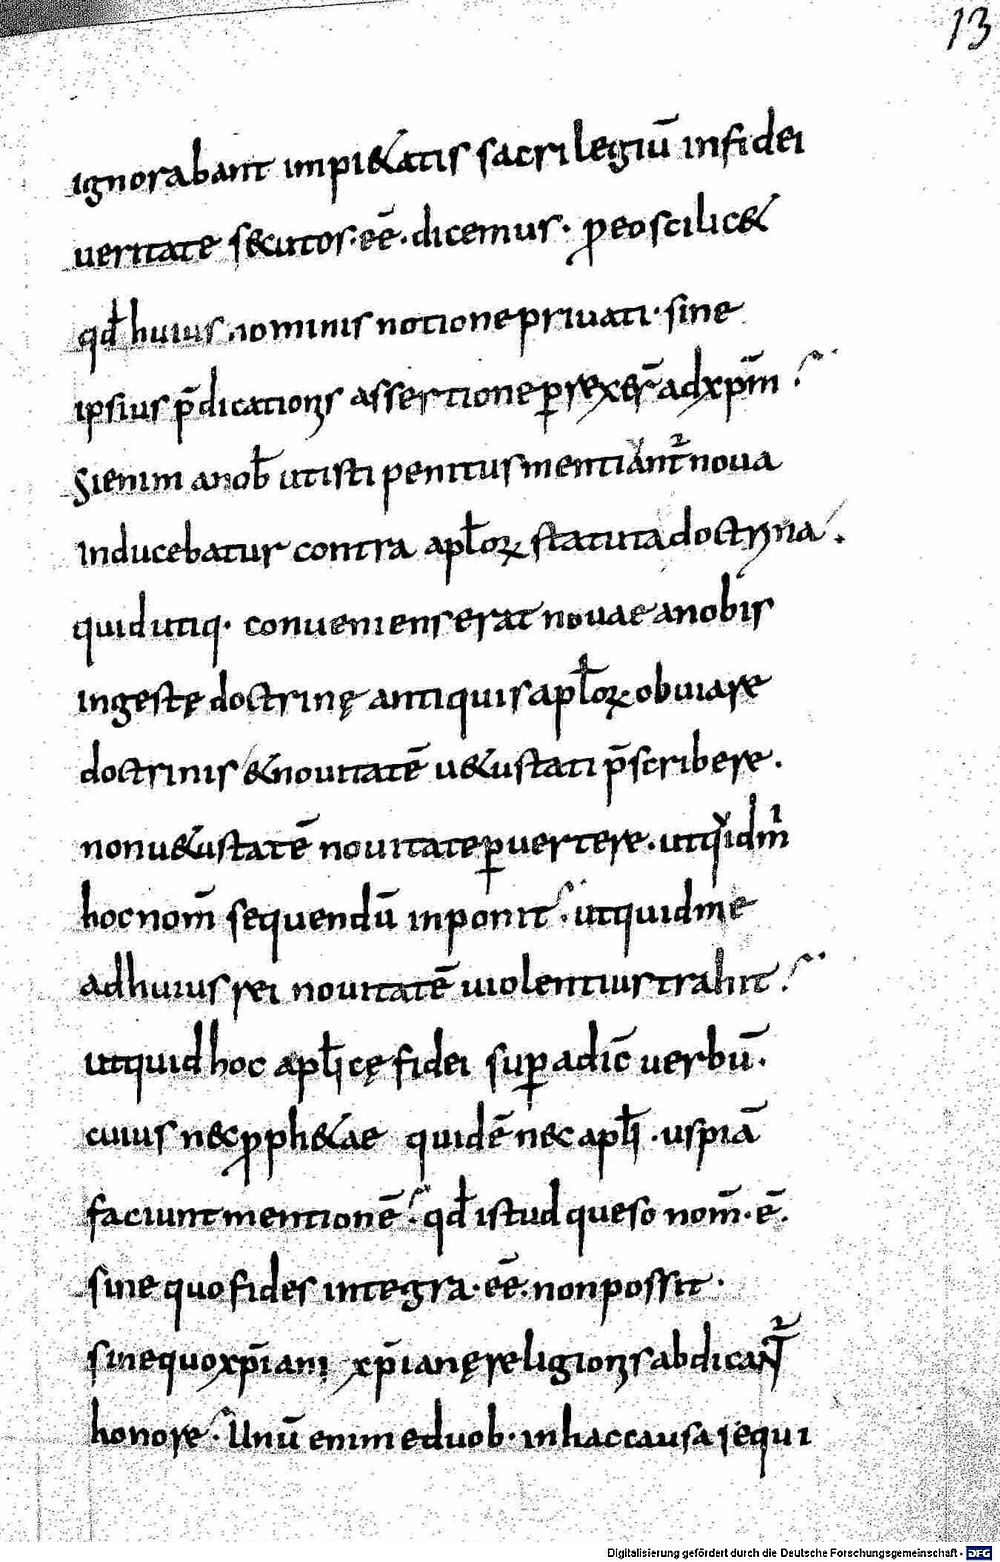 13
ignorabant impi&atis sacrilegiū in fidei
ueritate secutos · eē · dicemus · ꝓ eo scilic&
qđ huius nominis notione priuati · sine
ipsius p̄dicationis assertione ꝑrexer̄ ad xp̄m
Si enim a nob̄ ut isti penitus mentiantr̄ noua
inducebatur contra apl̄oꝝ statuta doctryna ·
quid utiq· conueniens erat nouae a nobis
ingestę doctrinę antiquis apl̄oꝝ obuiare
doctrinis & nouitatē u&ustati p̄scribere .
non u&ustatē nouitate ꝑuertere · utquid m̄
hoc nom̄ sequendū inponit · utquid me
ad huius rei nouitatē uiolentius trahit
utquid hoc apl̄icę fidei suꝑadic̄ uerbū .
cuius nec ꝓph&ae quidē nec apl̄i · uspiā
faciunt mentionē · qđ istud queso nom̄ · ē .
sine quo fides integra · eē · non possit ·
sine quo xp̄iani xp̄ianę religionis abdicantr̄
honore · Unū enim e duob · in hac causa sequi
Digitalisierung gefördert durch die Deutsche Forschungsgemeinschaft - DFG